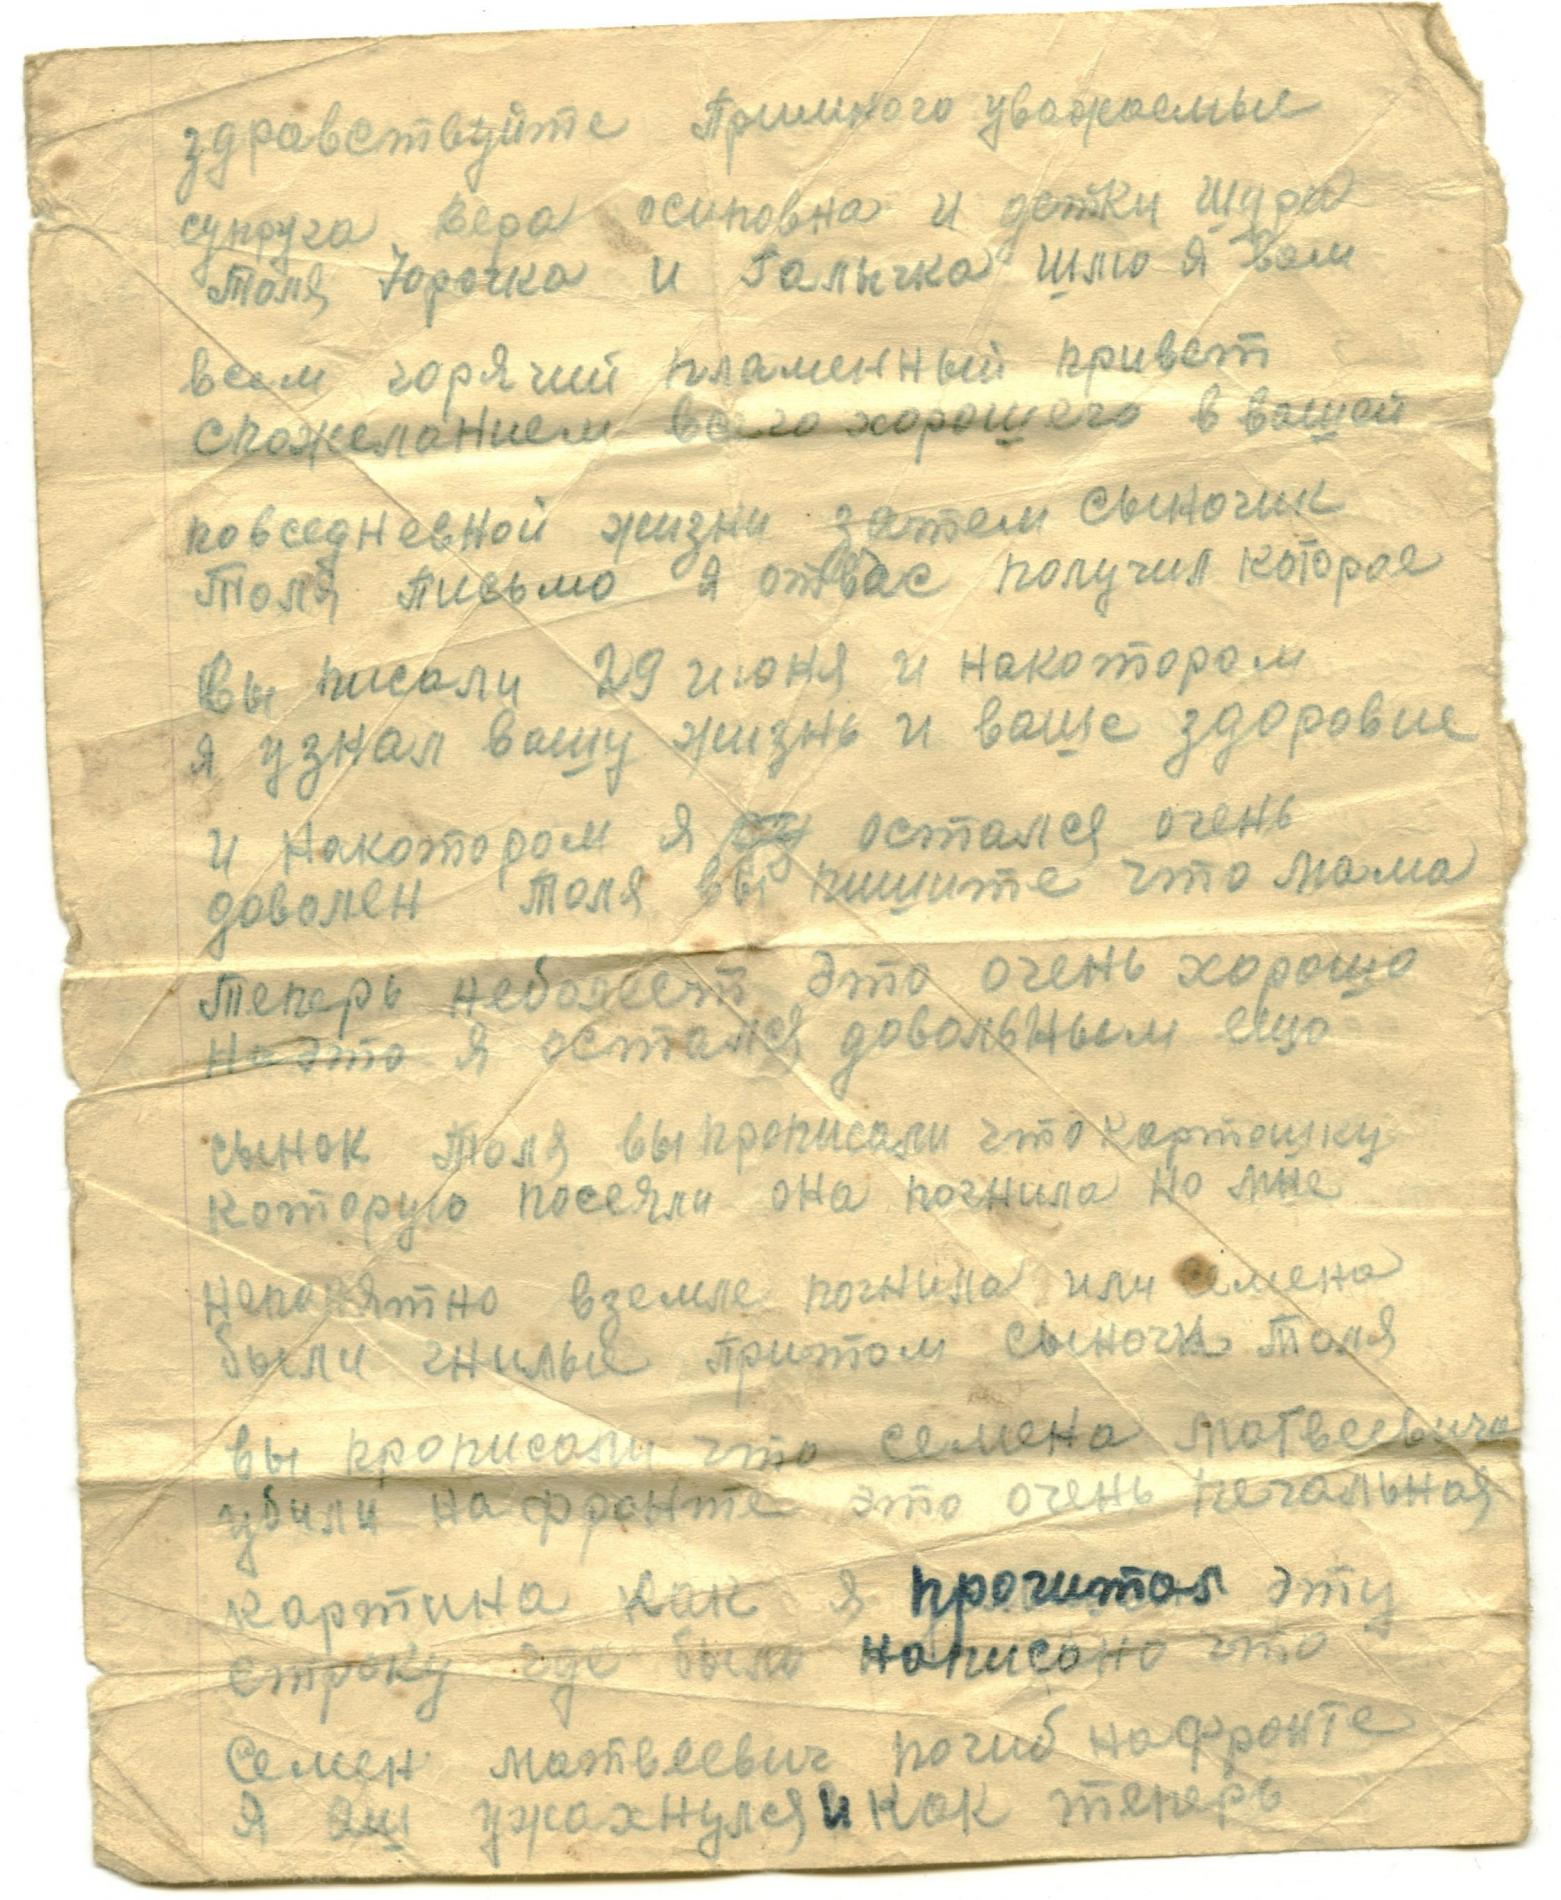 здравствуйте Примного уважаемые
супруга Вера осиповна и детки Шура
Толя Юрочка и Галычка шлю я Вам
всем горячий пламенный привет
спожеланием всего хорошего в вашей
повседневной жизни затем сыночик
Толя письмо я отвас получил которае
Вы писали 29 июня и накотором
я узнал вашу жизнь и ваше здоровие
и накотором я остался очень
доволен Толя вы пишите что мама
теперь неболеет это очень хорошо
на это я остался довольным ещо
сынок Толя вы прописали что картошку
которую посеяли она погнила но мне
непонятно вземле погнила или семена
были гнилые притом сыночк Толя
вы прописали что семена матвеевича
убили на фронте это очень печальная
картина как я прочитал эту
строку где было написано что
Семен матвеевич погиб на фронте
я аш ужахнулся и как теперь